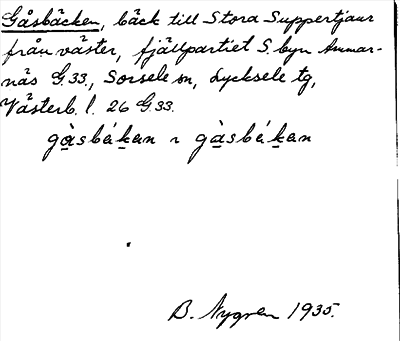 Gåsbäcken, bäck till Stora Suppertjaur
från väster, fjällpartiet S. byn Ammar-
näs G.33., Sorsele sn, Lycksele tg,
Västerb. l. 26 G.33.
gàsbákan ~ gàsbákan
B. Nygren 1935.